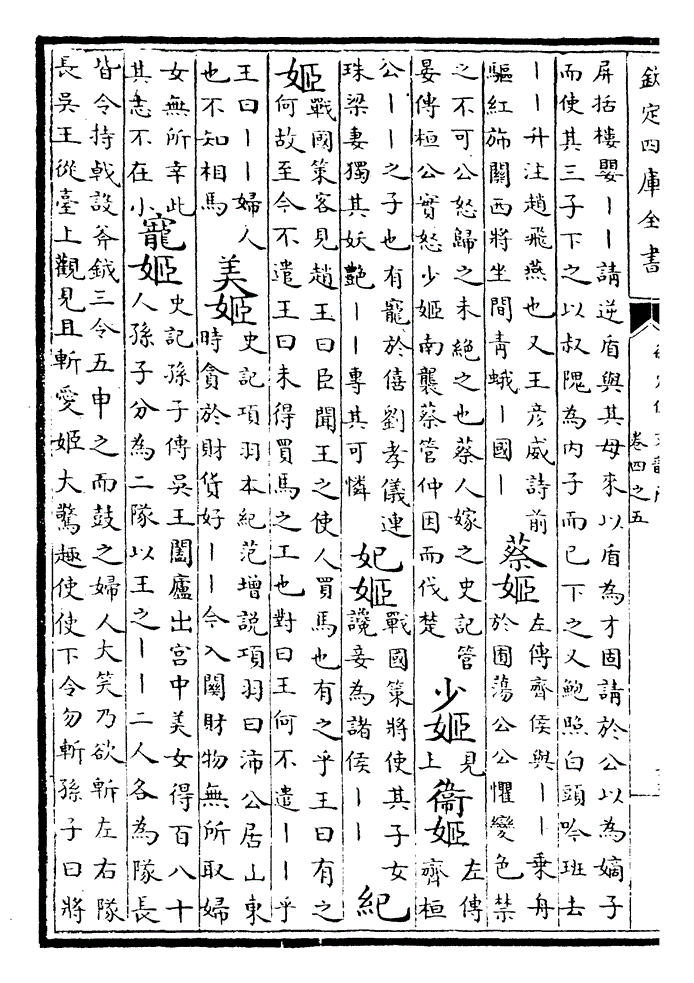 欽定四庫全書
卷四之五
屏括樓嬰丨丨請逆盾與其母來以盾為才固請於公以為嫡子
而使其三子下之以叔隗為内子而己下之又鮑照白頭吟班去
丨丨升注趙飛燕也又王彥威詩前
驅紅斾關西將坐間青蛾丨國丨
蔡姬
左傳齊侯與丨丨乗舟
於囿蕩公公懼變色禁
之不可公怒歸之未絶之也蔡人嫁之史記管
晏傳桓公實怒少姬南襲蔡管仲因而伐楚
少姬
見
上
衞姬
左傳
齊桓
公丨丨之子也有寵於僖劉孝儀連
珠梁妻獨其妖艷丨丨專其可憐
妃姬
戰國策將使其子女
讒妾為諸侯丨丨
紀
姬
戰國策客見趙王曰臣聞王之使人買馬也有之乎王曰有之
何故至今不遣王曰未得買馬之工也對曰王何不遣丨丨乎
王曰丨丨婦人
也不知相馬
美姬
史記項羽本紀范增説項羽曰沛公居山東
時貪於財貨好丨丨今入關財物無所取婦
女無所幸此
其志不在小
寵姬
史記孫子傳吳王闔廬出宫中美女得百八十
人孫子分為二隊以王之丨丨二人各為隊長
皆令持戟設斧鉞三令五申之而鼓之婦人大笑乃欲斬左右隊
長吳王從臺上觀見且斬愛姬大驚趣使使下令勿斬孫子曰將